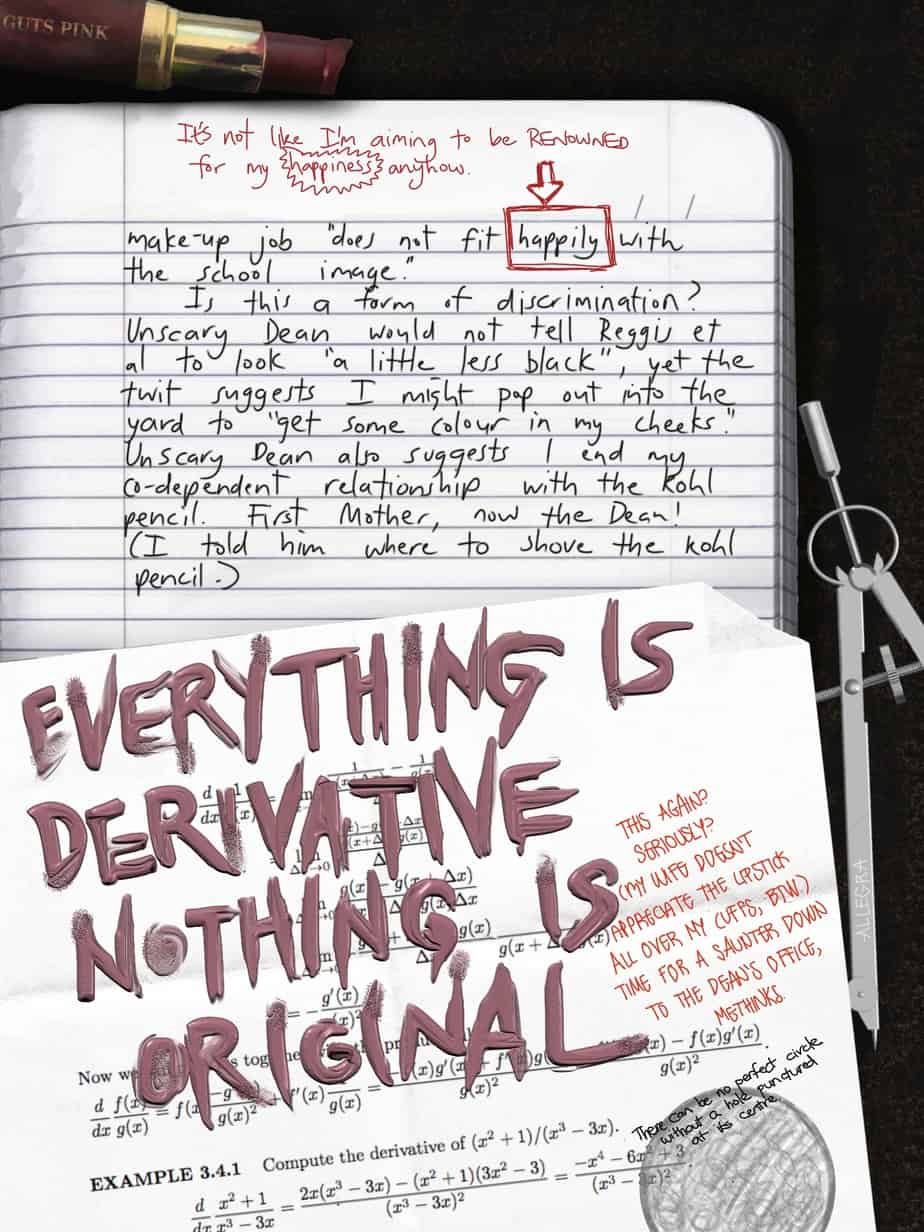 GUTS PINK
It's not like I'm aiming to be RENOWNED
for my happiness anyhow.
make-up job "does not fit happily with
the school image."
Is this a form of discrimination?
Unscary Dean would not tell Reggie et
al to look "a little less black", yet the
twit suggests I might pop out into the
yard to "get some colour in my cheeks."
Unscary Dean also suggests I end my
co-dependent relationship with the kohl
pencil. First Mother, now the Dean!
(I told him where to shove the kohl
pencil.)
EVERYTHING IS
DERIVATIVE
NOTHING IS
ORIGINAL
THIS AGAIN?
SERIOUSLY?
(MY WIFE DOESN'T
APPRECIATE THE LIPSTICK
ALL OVER MY CUFFS, BTW)
TIME FOR A SAUNTER DOWN
TO THE DEAN'S OFFICE,
METHINKS.
ALLEGRA
Now we
EXAMPLE 3.4.1 Compute the derivative of (x² + 1)/(x³ − 3x).
d/dx (x² + 1)/(x³ − 3x) = (2x(x³ − 3x) − (x² + 1)(3x² − 3))/(x³ − 3x)² = (−x⁴ − 6x² + 3)/(x³ − 3x)².
There can be no perfect circle
without a hole punctured
at its centre.